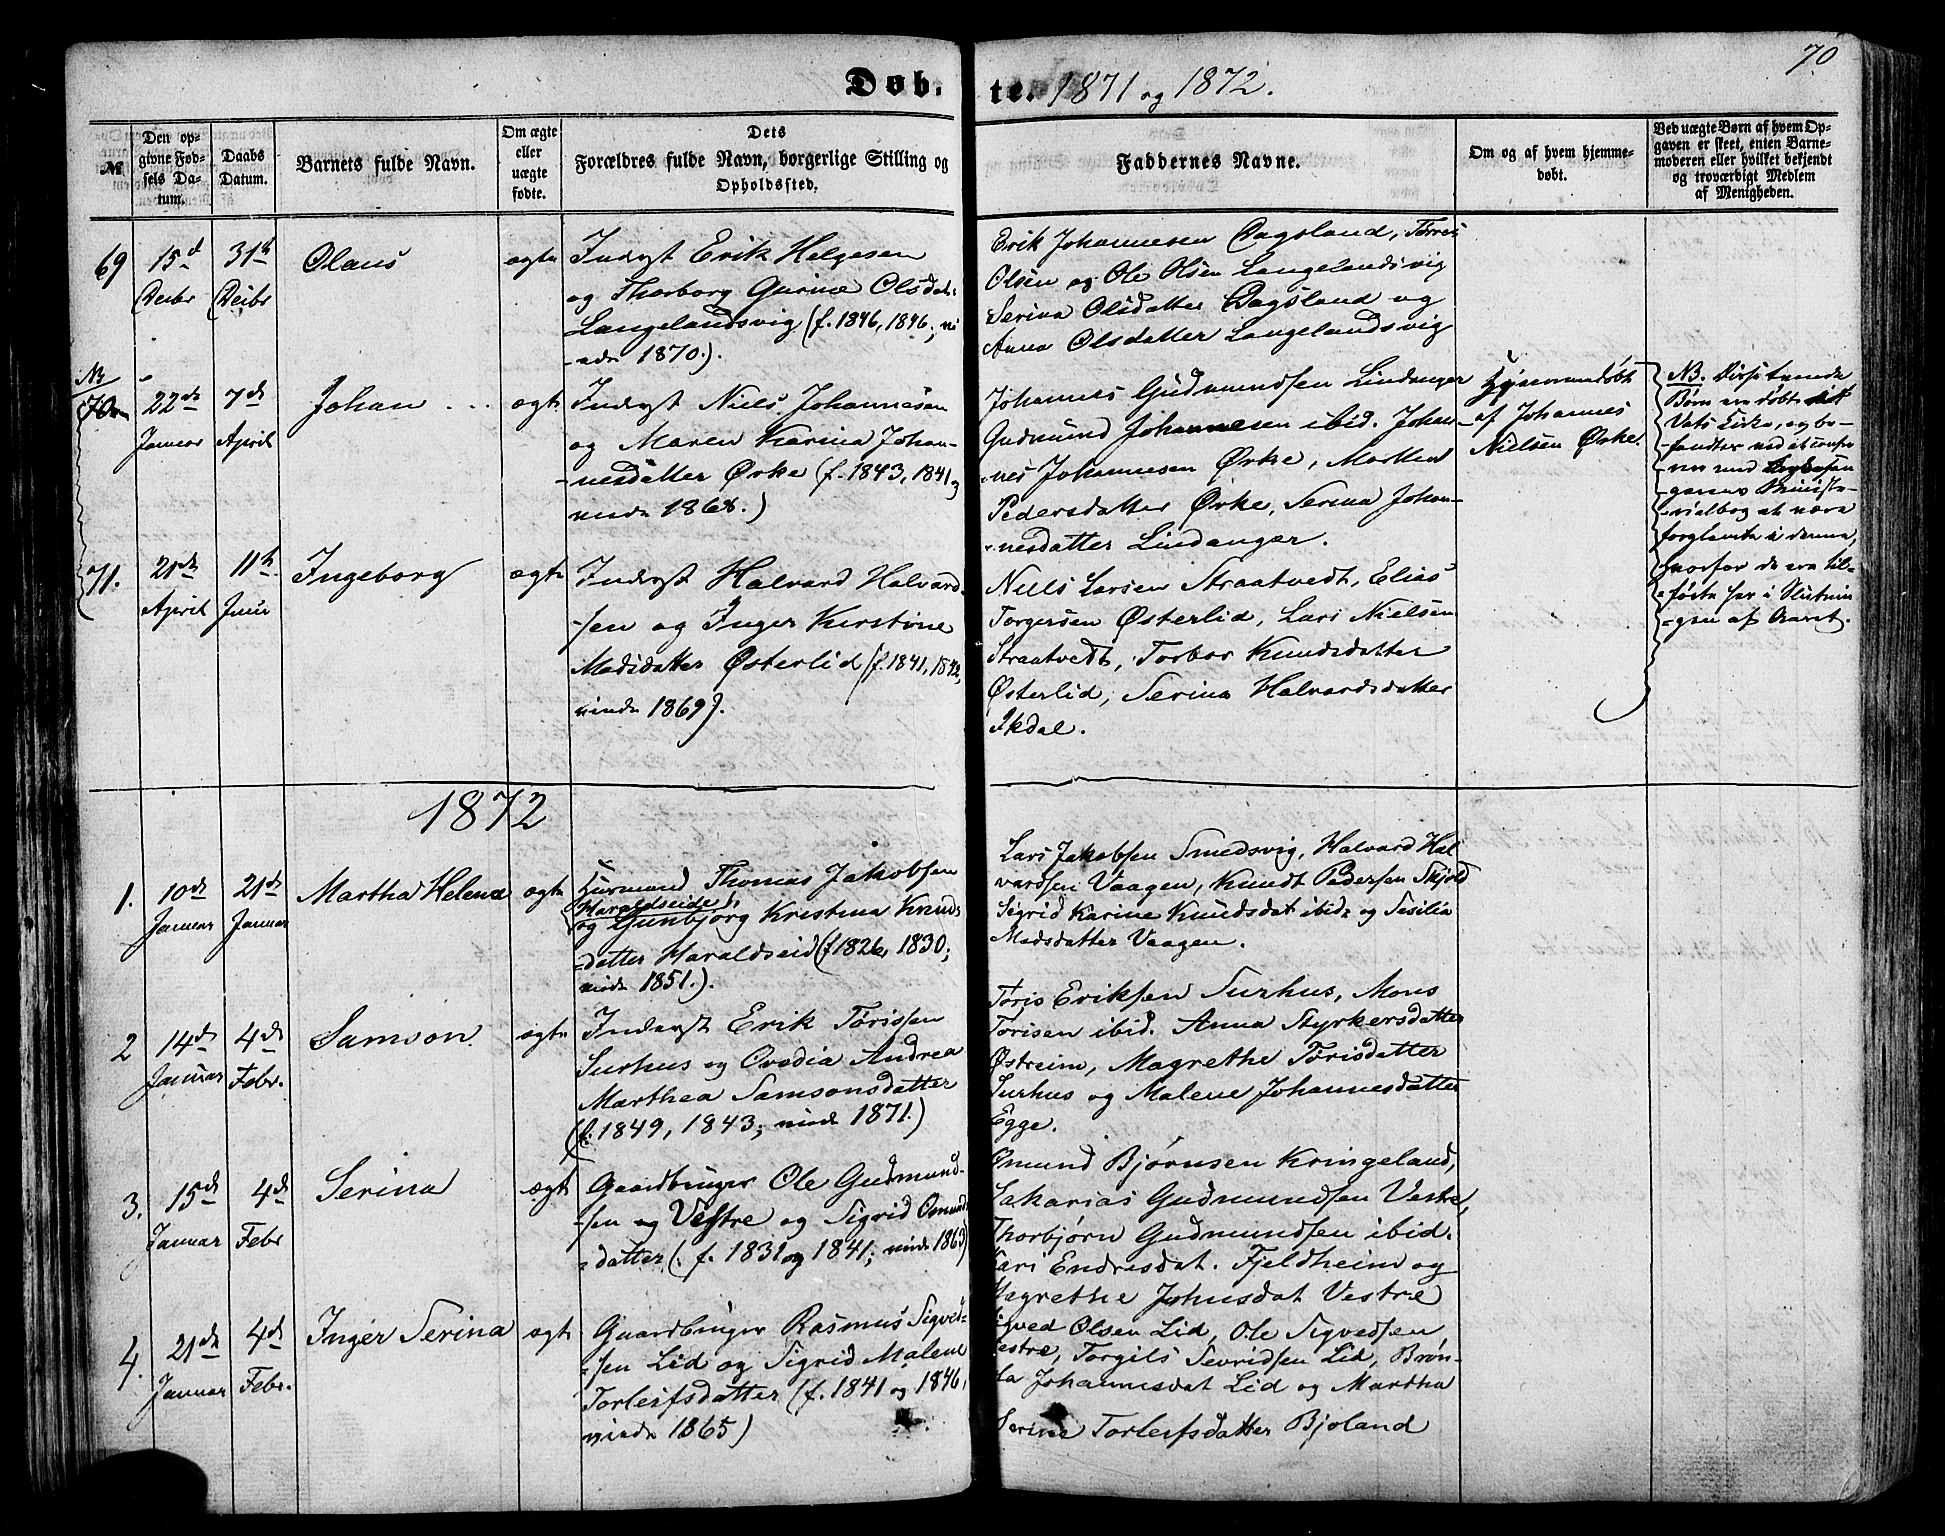 70
Døb- te. 1871 og 1872.
№
Den opgivne Fødsels Datum.
Daabs Datum.
Barnets fulde Navn.
Om ægte eller uægte fødte.
Dets Forældres fulde Navn, borgerlige Stilling og Opholdssted.
Faddernes Navne.
Om og af hvem hjemmedøbt.
Ved uægte Børn af hvem Opgaven er skeet, enten Barnemoderen eller hvilket bekjendt og troværdigt Medlem af Menigheden.
69 15d Decbr 31te Decbr Olaus ægte
Inderst Erik Helgesen
og Thorborg Gurine Olsdat:
Langelandsvig (f. 1846, 1846; vi
-ede 1870.).
Erik Johannesen Dagsland, Tørres
Olsen og Ole Olsen Langelandsvig
Serina Olsdatter Dagsland og
Anna Olsdatter Langelandsvig
NB
70 22de Januar 7de April Johan ægte
Inderst Niels Johannesen
og Maren Karina Johan-
-nesdatter Ørke (f. 1843, 1841,
viede 1868.)
Johannes Gudmundsen Lindanger
Gudmund Johannesen ibid. Johan
-nes Johannesen Ørke, Marthe
Pedersdatter Ørke, Serina Johan-
-nesdatter Lindanger.
Hjemmedøbt
af Johannes
Nielsen Ørke.
NB. Disse tvende
Børn ere døbte i
Vats Kirke, og be-
fandtes ved at confe-
rere med
Minist-
-rialbog at være
forglemte i denne,
hvorfor de ere til-
-førte her i Slutnin
-gen af Aaret.
71. 21de April 11te Juni Ingeborg ægte
Inderst Halvard Halvard-
-sen og Inger Kirstine
Madsdatter Østerlid (f. 1841, 1842,
viede 1869).
Niels Larsen Straatvedt, Elias
Torgersen Østerlid, Lars Nielsen
Straatvedt, Torbor Knudsdatter
Østerlid, Serina Halvardsdatter
Ikdal.
1872
1. 10de Januar 21de Januar Martha Helena ægte
Huusmand Thomas Jakobsen
Haraldseide,
og Gunbjørg Kristina Knuds
-datter Haraldseid (f. 1826, 1830;
viede 1851.).
Lars Jakobsen Smedsvig, Halvard Hal
vardsen Vaagen, Knudt Pedersen Skjold
Sigrid Karine Knudsdat ibid: og Sesilia
Madsdatter Vaagen.
2 14de Januar 4de Febr. Samson. ægte
Inderst Erik Tørissen
Surhus og Ovedia Andrea
Marthea Samsonsdatter
(f. 1849, 1843; viede 1871.)
Tøris Eriksen Surhus, Mons
Tørisen ibid. Anna Styrkersdatter
Østreim, Magrethe Tørisdatter
Surhus og Malene Johannesdatter
Egge.
3. 15de Januar 4de Febr Serina ægte
Gaardbruger Ole Gudmund-
-sen og Vestre og Sigrid Omund
-datter (. f. 1831 og 1841; viede 1863)
Omund Bjørnsen Kringeland,
Sakarias Gudmundsen Vestre,
Thorbjørn Gudmundsen ibid.
Kari Endresdat. Fjeldheim og
Magrethe Johnsdat Vestre
4. 21de Januar 4de Febr. Inger Serina ægte
Gaardbruger Rasmus Sigved-
-sen Lid og Sigrid Malene
Torleifsdatter (f. 1841 og 1846,
viede 1865)
Sigved Olsen Lid, Ole Sigvedsen,
Vestre, Torgils Sevridsen Lid, Brøn-
la Johannesdat Lid og Martha
Serine Torleifsdatter Bjoland